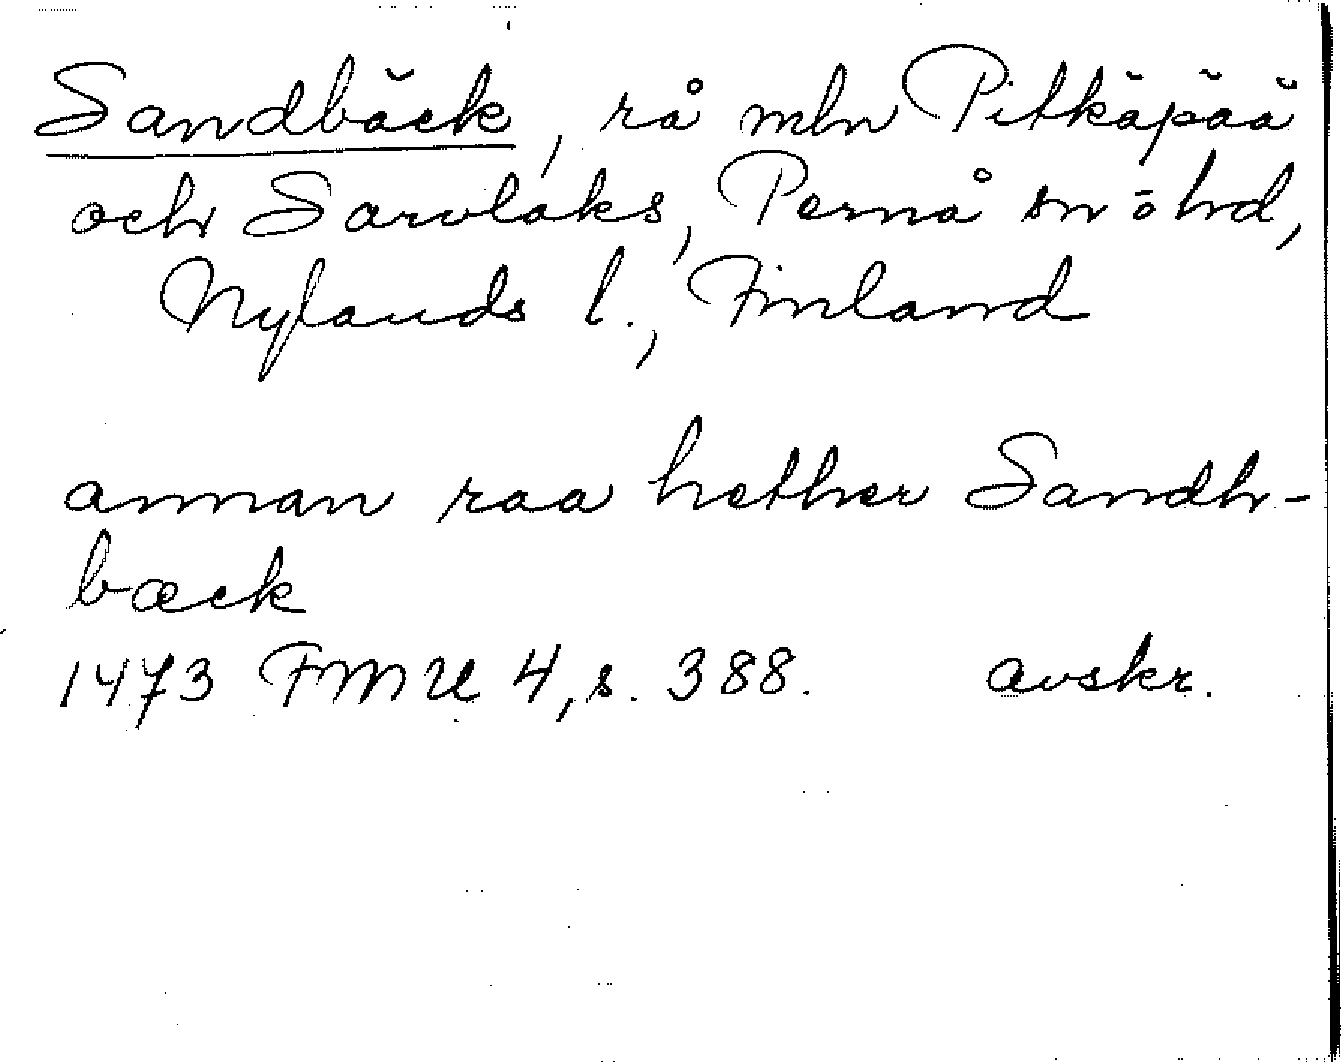 Sandbäck, rå mln Pitkäpää
och Sarvlaks, Pernå sn o hd,
Nylands l., Finland
annan raa hether Sandh-
bæck
1473 FMU 4, s. 388. avskr.